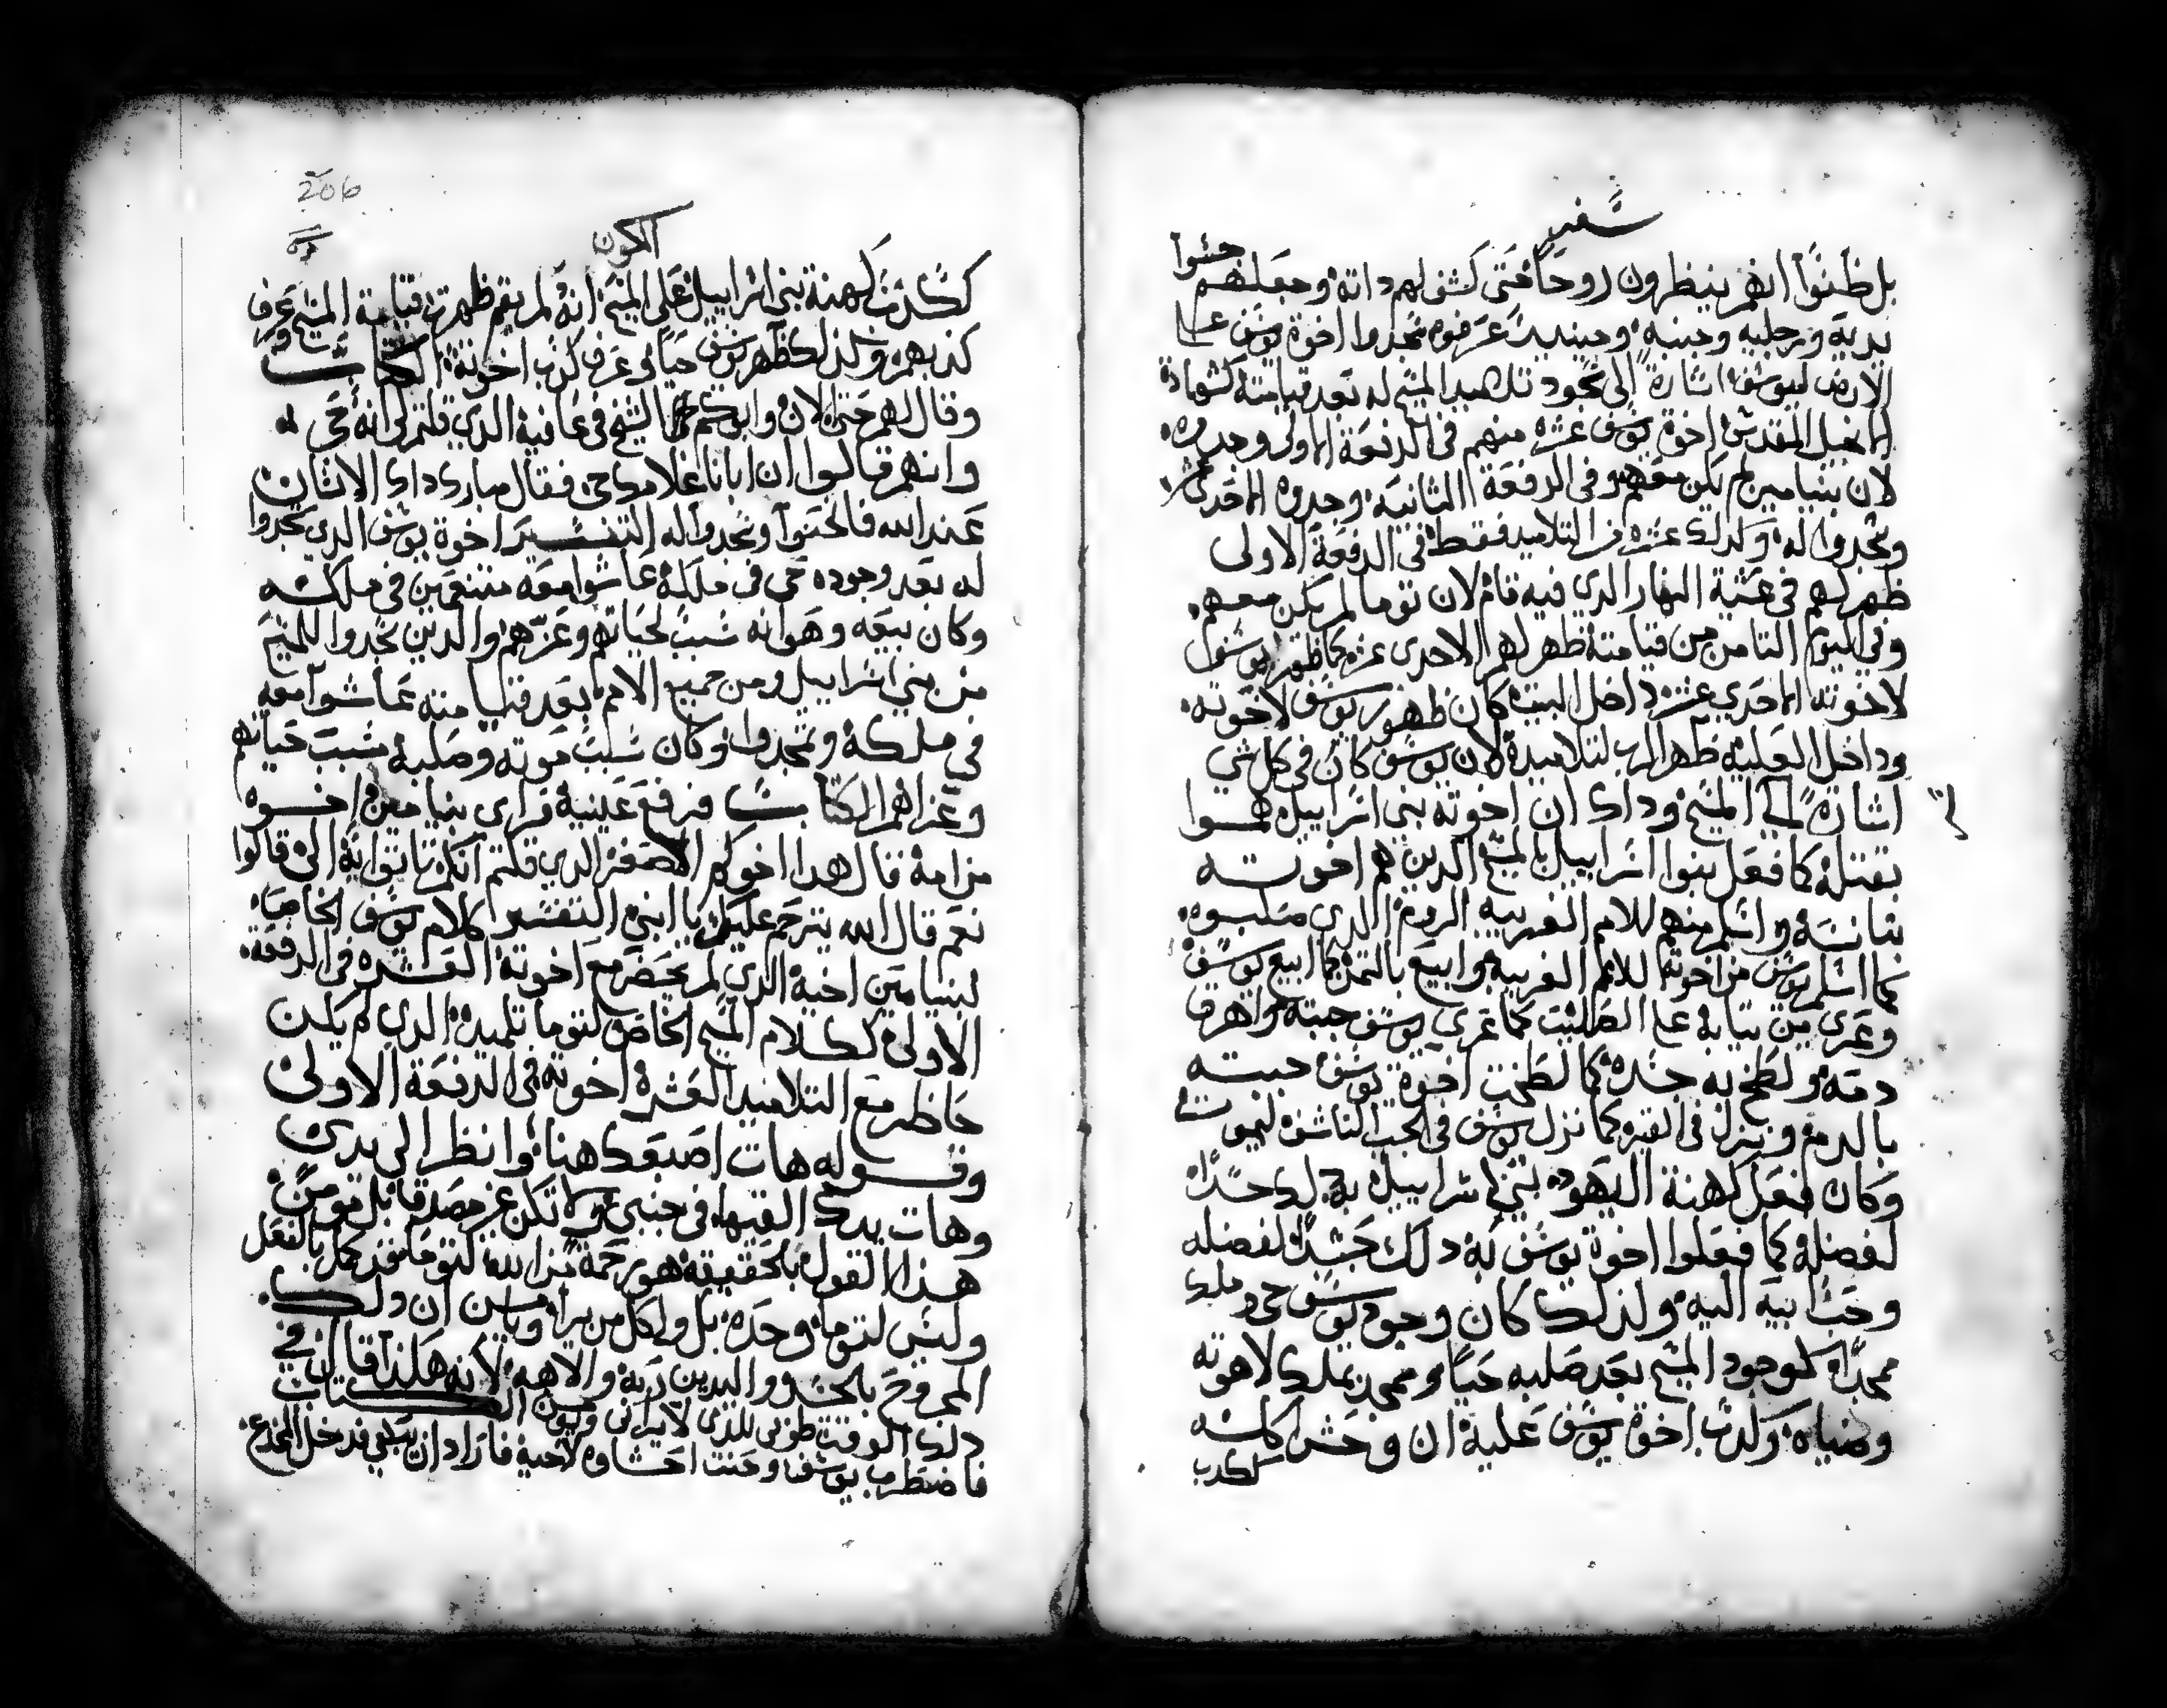 سفر
بل ظنوا انهم ينظرون روحا حتى كشف لهم داته وجعلهم جسوا
يديه ورجليه وجنبه وحينيد عرفوه سجدوا اخوة يوسف علي
الارض ليوسف اشارة الى سجود تلاميد المسيح له بعد قيامته كشهادة
الانجيل المقدس اخوة يوسف عشره منهم في الدفعة الاولى وجدوه
لان بنيامين لم يكن معهم وفي الدفعة الثانيه وجدوه الاحدى عشر
وسجدوا له وكدلك عشره من التلاميد فقط في الدفعة الاولى
ظهر لهم في عشية النهار الدي فيه قام لان توما لم يكن معهم
وفي اليوم التامن من قيامته ظهر لهم الاحدى عشر كما ظهر يوسف
لاخوته الاحدي عشر داخل البيت كان ظهور يوسف لاخوته
وداخل العليه ظهر الرب لتلاميده لان يوسف كان في كل شي
اشارة الى المسيح وداك ان اخوته بني اسراييل هموا
بقتله كما فعل بنوا اسراييل بالمسيح الدين هم اخوته
بتانسه واسلم منهم للامم الغريبه الروم الدي صلبوه
كما اسلم يوسف من اخوته للامم الغريبه وابيع بالتمن كما ابيع يوسف
وعري من تيابه على الصليب كما عري يوسف جبته واهرق
دمه ولطخ به جسده كما لطخت اخوة يوسف جبته
بالدم ونزل في القبر كما نزل يوسف في الجب الناشف ليموت
وكان فعل كهنة اليهود بني اسراييل به دلك حسدا
لفضله كما فعلوا اخوة يوسف به دلك حسدا لفضله
وحب ابيه اليه ولذلك كان وجود يوسف حي وملك
ممجدا كوجود المسيح بعد صلبه حيا وممجد بملك لاهوته
وضياه وكدب اخوة يوسف عليه ان وحش اكله
ككدب
206
الكون
ككدب كهنة بني اسراييل على المسيح انه لم يقم ظهرت قيامة المسيح وعرف
كذبهم وكذلك ظهر يوسف حيا وعرف كدب اخوته الكتاب
وقال لهم حتى الان وابوكم الشيخ في عافية الدي قلتم لي انه حي
وانهم قالوا ان ابانا غلامك حي فقال مبارك داك الانسان
عند الله فانحنوا وسجدوا له التفسير اخوة يوسف الدي سجدوا
له بعد وجوده حي في ملكه عاشوا معه متنعمين في ملكه
وكان بيعه وهوانه سبب لحياتهم وعزهم والدين سجدوا للمسيح
من بني اسراييل ومن جميع الامم بعد قيامته عاشوا معه
في ملكه وتمجدوا وكان سبب موته وصلبه سبب حياتهم
وعزاهم الكتاب فرفع عينيه فراى بنيامين اخوه
من امه قال هدا اخوكم الاصغر الدي قلتم انكم تاتوا به الي قالوا
نعم قال الله يترحم عليك يا ابني التفسير كلام يوسف الخاص
لبنيامين اخيه الدي لم يحضر مع اخوته العشره في الدفعة
الاولى ككلام المسيح الخاص لتوما تلميده الدي لم يكن
حاظر مع التلاميد العشره اخوته في الدفعة الاولى
وقوله هات اصبعك هنا وانظر الى يدي
وهات يدك القيها في جنبي ولا تكن غير مصدقا بل مومن
هذا القول بالحقيقه هو رحمة من الله لتوما قد كمل بالفعل
وليس لتوما وحده بل ولكل من يرا ويامن ان دلك
المجروح بالجنب واليدين ربه والاهه لانه هكذا قال في
دلك الوقت طوبى للدي لا يراني ويومن الكتاب
فاضطرب يوسف وحنت احشاوه لاخيه فاراد ان يبكي فدخل المخدع